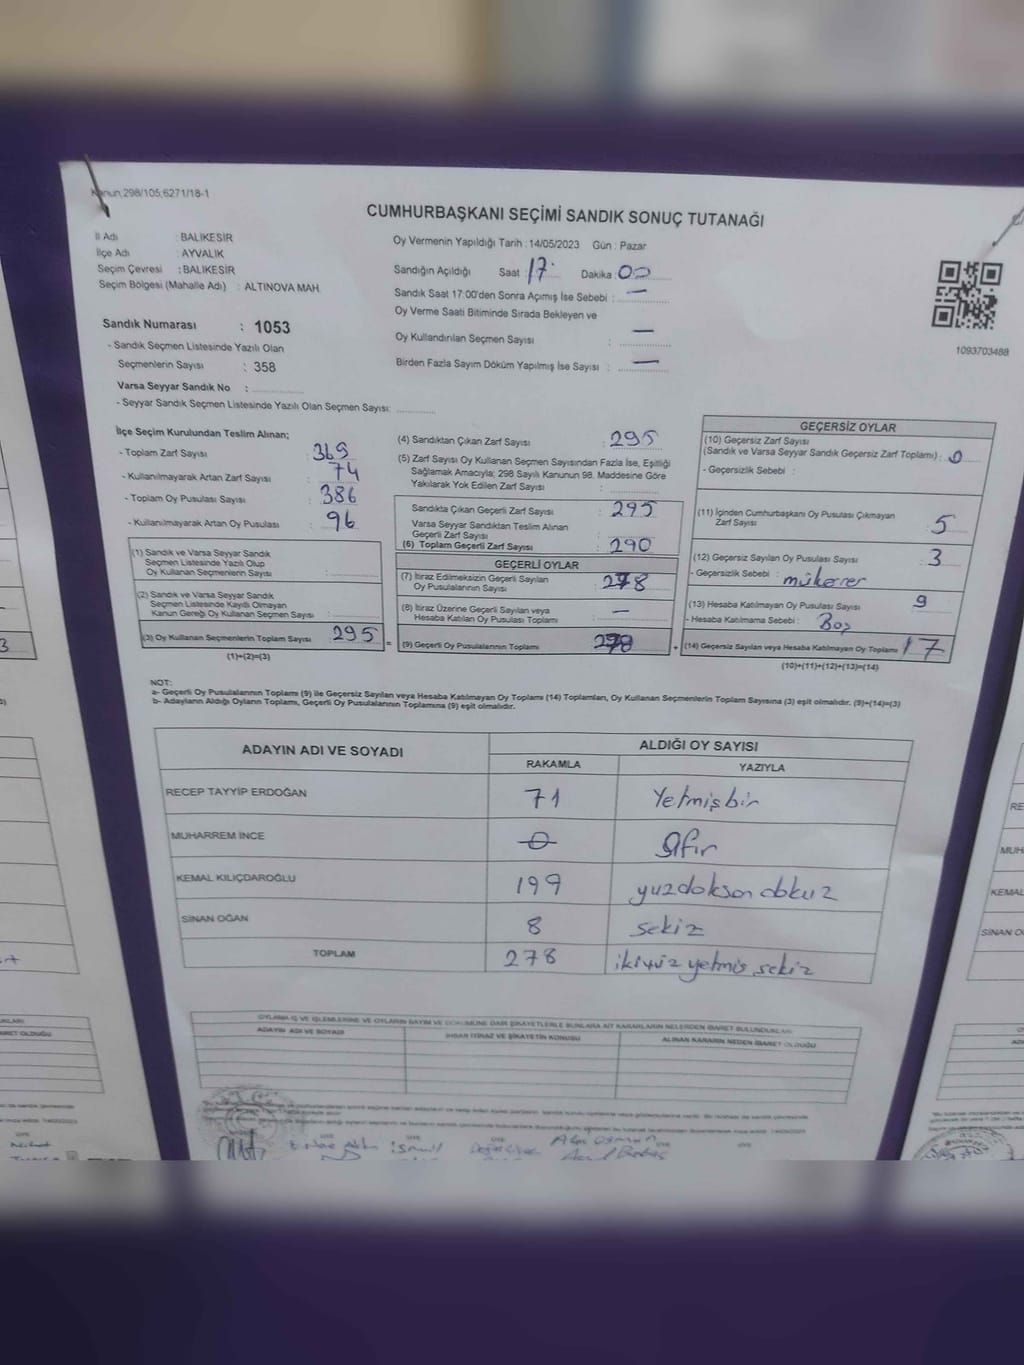 Kanun,298/105,6271/18-1
CUMHURBAŞKANI SEÇİMİ SANDIK SONUÇ TUTANAĞI
İl Adı : BALIKESİR
İlçe Adı : AYVALIK
Seçim Çevresi : BALIKESİR
Seçim Bölgesi (Mahalle Adı) : ALTINOVA MAH
Sandık Numarası : 1053
- Sandık Seçmen Listesinde Yazılı Olan
Seçmenlerin Sayısı : 358
Varsa Seyyar Sandık No :
- Seyyar Sandık Seçmen Listesinde Yazılı Olan Seçmen Sayısı:
Oy Vermenin Yapıldığı Tarih : 14/05/2023 Gün : Pazar
Sandığın Açıldığı Saat : 17 Dakika : 00
Sandık Saat 17:00'den Sonra Açımış İse Sebebi : —
Oy Verme Saati Bitiminde Sırada Bekleyen ve
Oy Kullandırılan Seçmen Sayısı : —
Birden Fazla Sayım Döküm Yapılmış İse Sayısı : —
1093703488
İlçe Seçim Kurulundan Teslim Alınan;
- Toplam Zarf Sayısı : 369
- Kullanılmayarak Artan Zarf Sayısı : 74
- Toplam Oy Pusulası Sayısı : 386
- Kullanılmayarak Artan Oy Pusulası : 96
(1) Sandık ve Varsa Seyyar Sandık
Seçmen Listesinde Yazılı Olup
Oy Kullanan Seçmenlerin Sayısı :
(2) Sandık ve Varsa Seyyar Sandık
Seçmen Listesinde Kayıtlı Olmayan
Kanun Gereği Oy Kullanan Seçmen Sayısı :
(3) Oy Kullanan Seçmenlerin Toplam Sayısı : 295
(1)+(2)=(3)
(4) Sandıktan Çıkan Zarf Sayısı : 295
(5) Zarf Sayısı Oy Kullanan Seçmen Sayısından Fazla İse, Eşitliği
Sağlamak Amacıyla; 298 Sayılı Kanunun 98. Maddesine Göre
Yakılarak Yok Edilen Zarf Sayısı :
Sandıkta Çıkan Geçerli Zarf Sayısı : 295
Varsa Seyyar Sandıktan Teslim Alınan
Geçerli Zarf Sayısı :
(6) Toplam Geçerli Zarf Sayısı : 290
GEÇERLİ OYLAR
(7) İtiraz Edilmeksizin Geçerli Sayılan
Oy Pusulalarının Sayısı : 278
(8) İtiraz Üzerine Geçerli Sayılan veya
Hesaba Katılan Oy Pusulası Toplamı : —
(9) Geçerli Oy Pusulalarının Toplamı : 278
GEÇERSİZ OYLAR
(10) Geçersiz Zarf Sayısı
(Sandık ve Varsa Seyyar Sandık Geçersiz Zarf Toplamı) : 0
- Geçersizlik Sebebi :
(11) İçinden Cumhurbaşkanı Oy Pusulası Çıkmayan
Zarf Sayısı : 5
(12) Geçersiz Sayılan Oy Pusulası Sayısı : 3
- Geçersizlik Sebebi : mükerrer
(13) Hesaba Katılmayan Oy Pusulası Sayısı : 9
- Hesaba Katılmama Sebebi : Boş
(14) Geçersiz Sayılan veya Hesaba Katılmayan Oy Toplamı : 17
(10)+(11)+(12)+(13)=(14)
NOT:
a- Geçerli Oy Pusulalarının Toplamı (9) ile Geçersiz Sayılan veya Hesaba Katılmayan Oy Toplamı (14) Toplamları, Oy Kullanan Seçmenlerin Toplam Sayısına (3) eşit olmalıdır. (9)+(14)=(3)
b- Adayların Aldığı Oyların Toplamı, Geçerli Oy Pusulalarının Toplamına (9) eşit olmalıdır.
ADAYIN ADI VE SOYADI ALDIĞI OY SAYISI
RAKAMLA YAZIYLA
RECEP TAYYİP ERDOĞAN 71 Yetmişbir
MUHARREM İNCE 0 Sıfır
KEMAL KILIÇDAROĞLU 199 yuzdoksan dokuz
SİNAN OĞAN 8 sekiz
TOPLAM 278 ikiyüz yetmiş sekiz
OYLAMA İŞ VE İŞLEMLERİNE VE OYLARIN SAYIM VE DÖKÜMÜNE DAİR ŞİKAYETLERLE BUNLARA AİT KARARLARIN NELERDEN İBARET BULUNDUKLARI
ADAYIN ADI VE SOYADI İHBAR İTİRAZ VE ŞİKAYETİN KONUSU ALINAN KARARIN NEDEN İBARET OLDUĞU